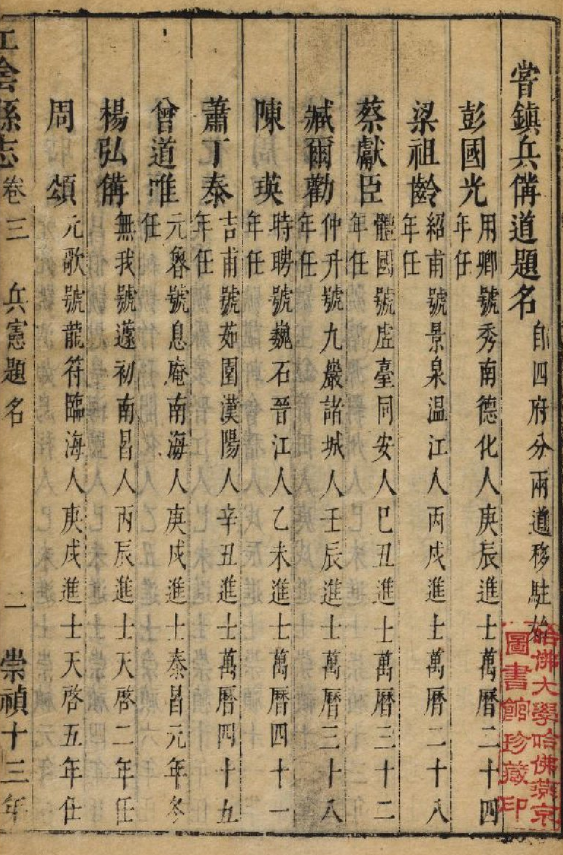 甞鎮兵偹道題名 自四府分兩道移駐始
彭國光 用卿號秀南德化人庚辰進士萬曆二十四年任
梁祖齡 紹甫號景泉温江人丙戌進士萬曆二十八年任
蔡獻臣 體國號虚臺同安人巳丑進士萬曆三十二年任
臧爾勸 仲升號九巖諸城人壬辰進士萬曆三十八年任
陳瑛 時聘號巍石晉江人乙未進士萬曆四十一年任
蕭丁泰 吉甫號茹園漢陽人辛丑進士萬曆四十五年任
曾道唯 元魯號息庵南海人庚戌進士泰昌元年冬任
楊弘偹 無我號蘧初南昌人丙辰進士天啓二年任
周頌 元歌號龍符臨海人庚戌進士天啓五年任
江陰縣志 卷三 兵憲題名 一 崇禎十三年
哈佛大學哈佛燕京圖書館珍藏印